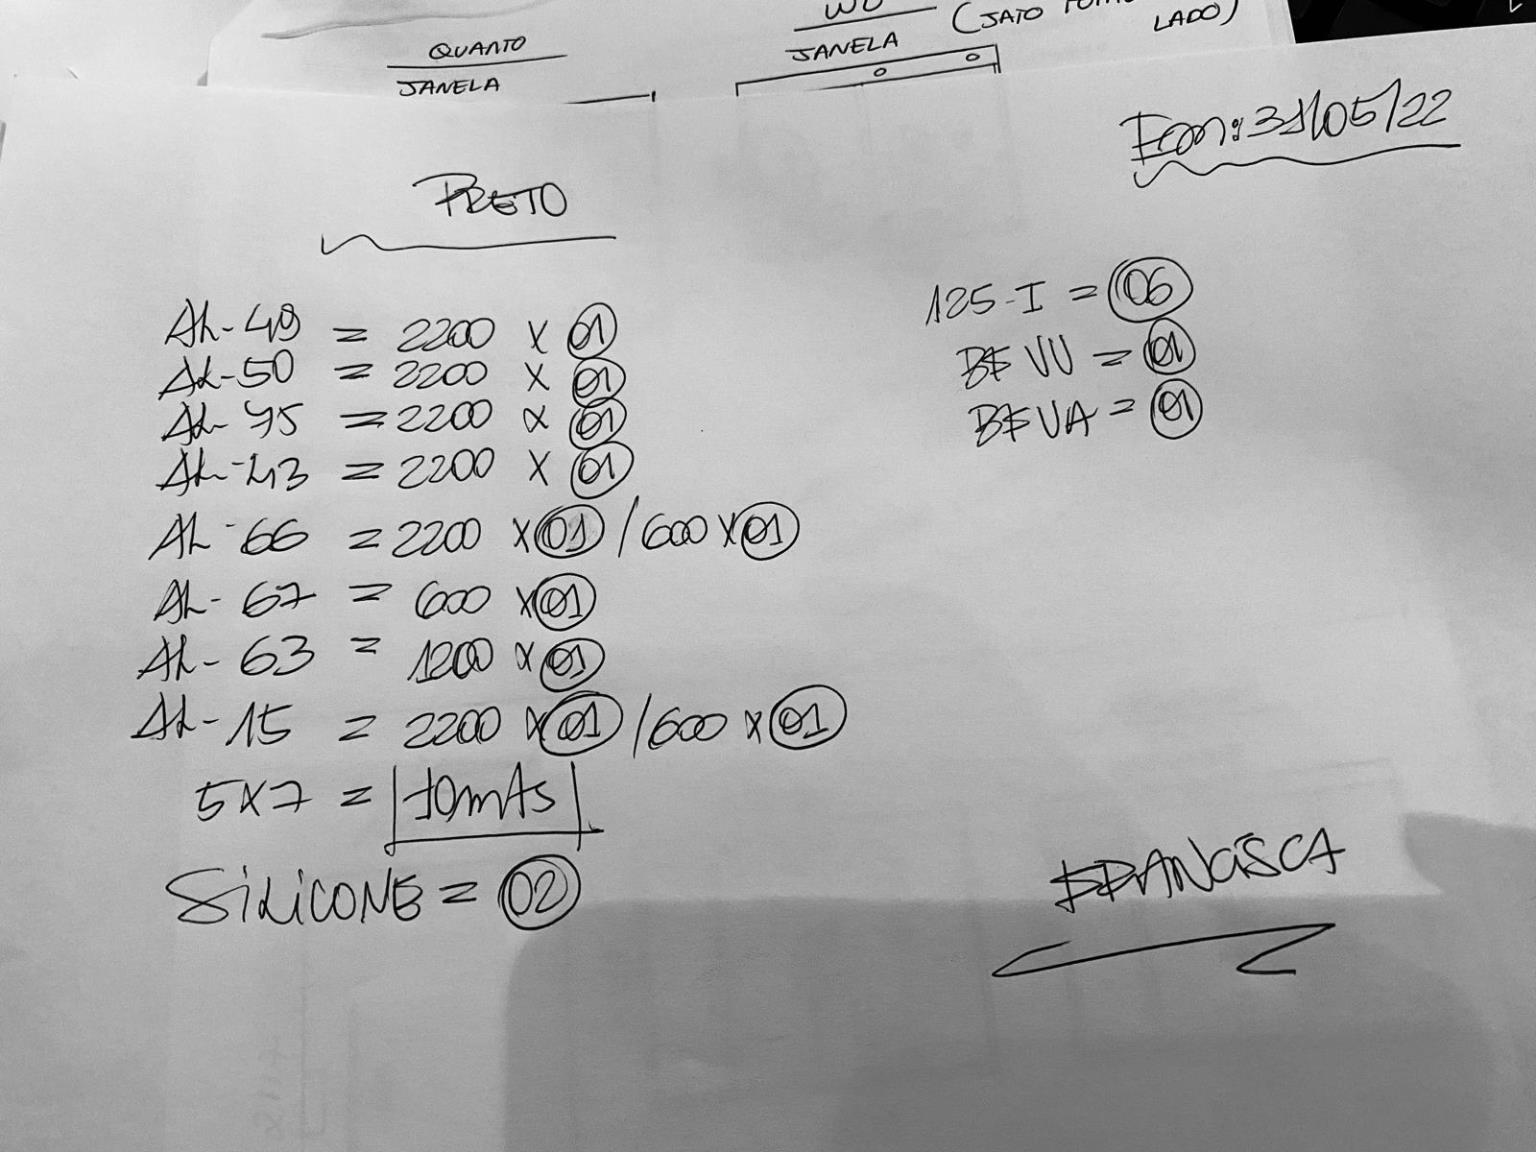 QUANTO
JANELA
JANELA
(JATO
LADO)
Em: 31/05/22
PRETO
AL-49 = 2200 x 01
AL-50 = 2200 x 01
AL-75 = 2200 x 01
AL-43 = 2200 x 01
AL-66 = 2200 x 01 / 600 x 01
AL-67 = 600 x 01
AL-63 = 1200 x 01
AL-15 = 2200 x 01 / 600 x 01
5x7 = 10mts
SILICONE = 02
125-I = 06
VU = 01
VA = 01
FRANCISCA